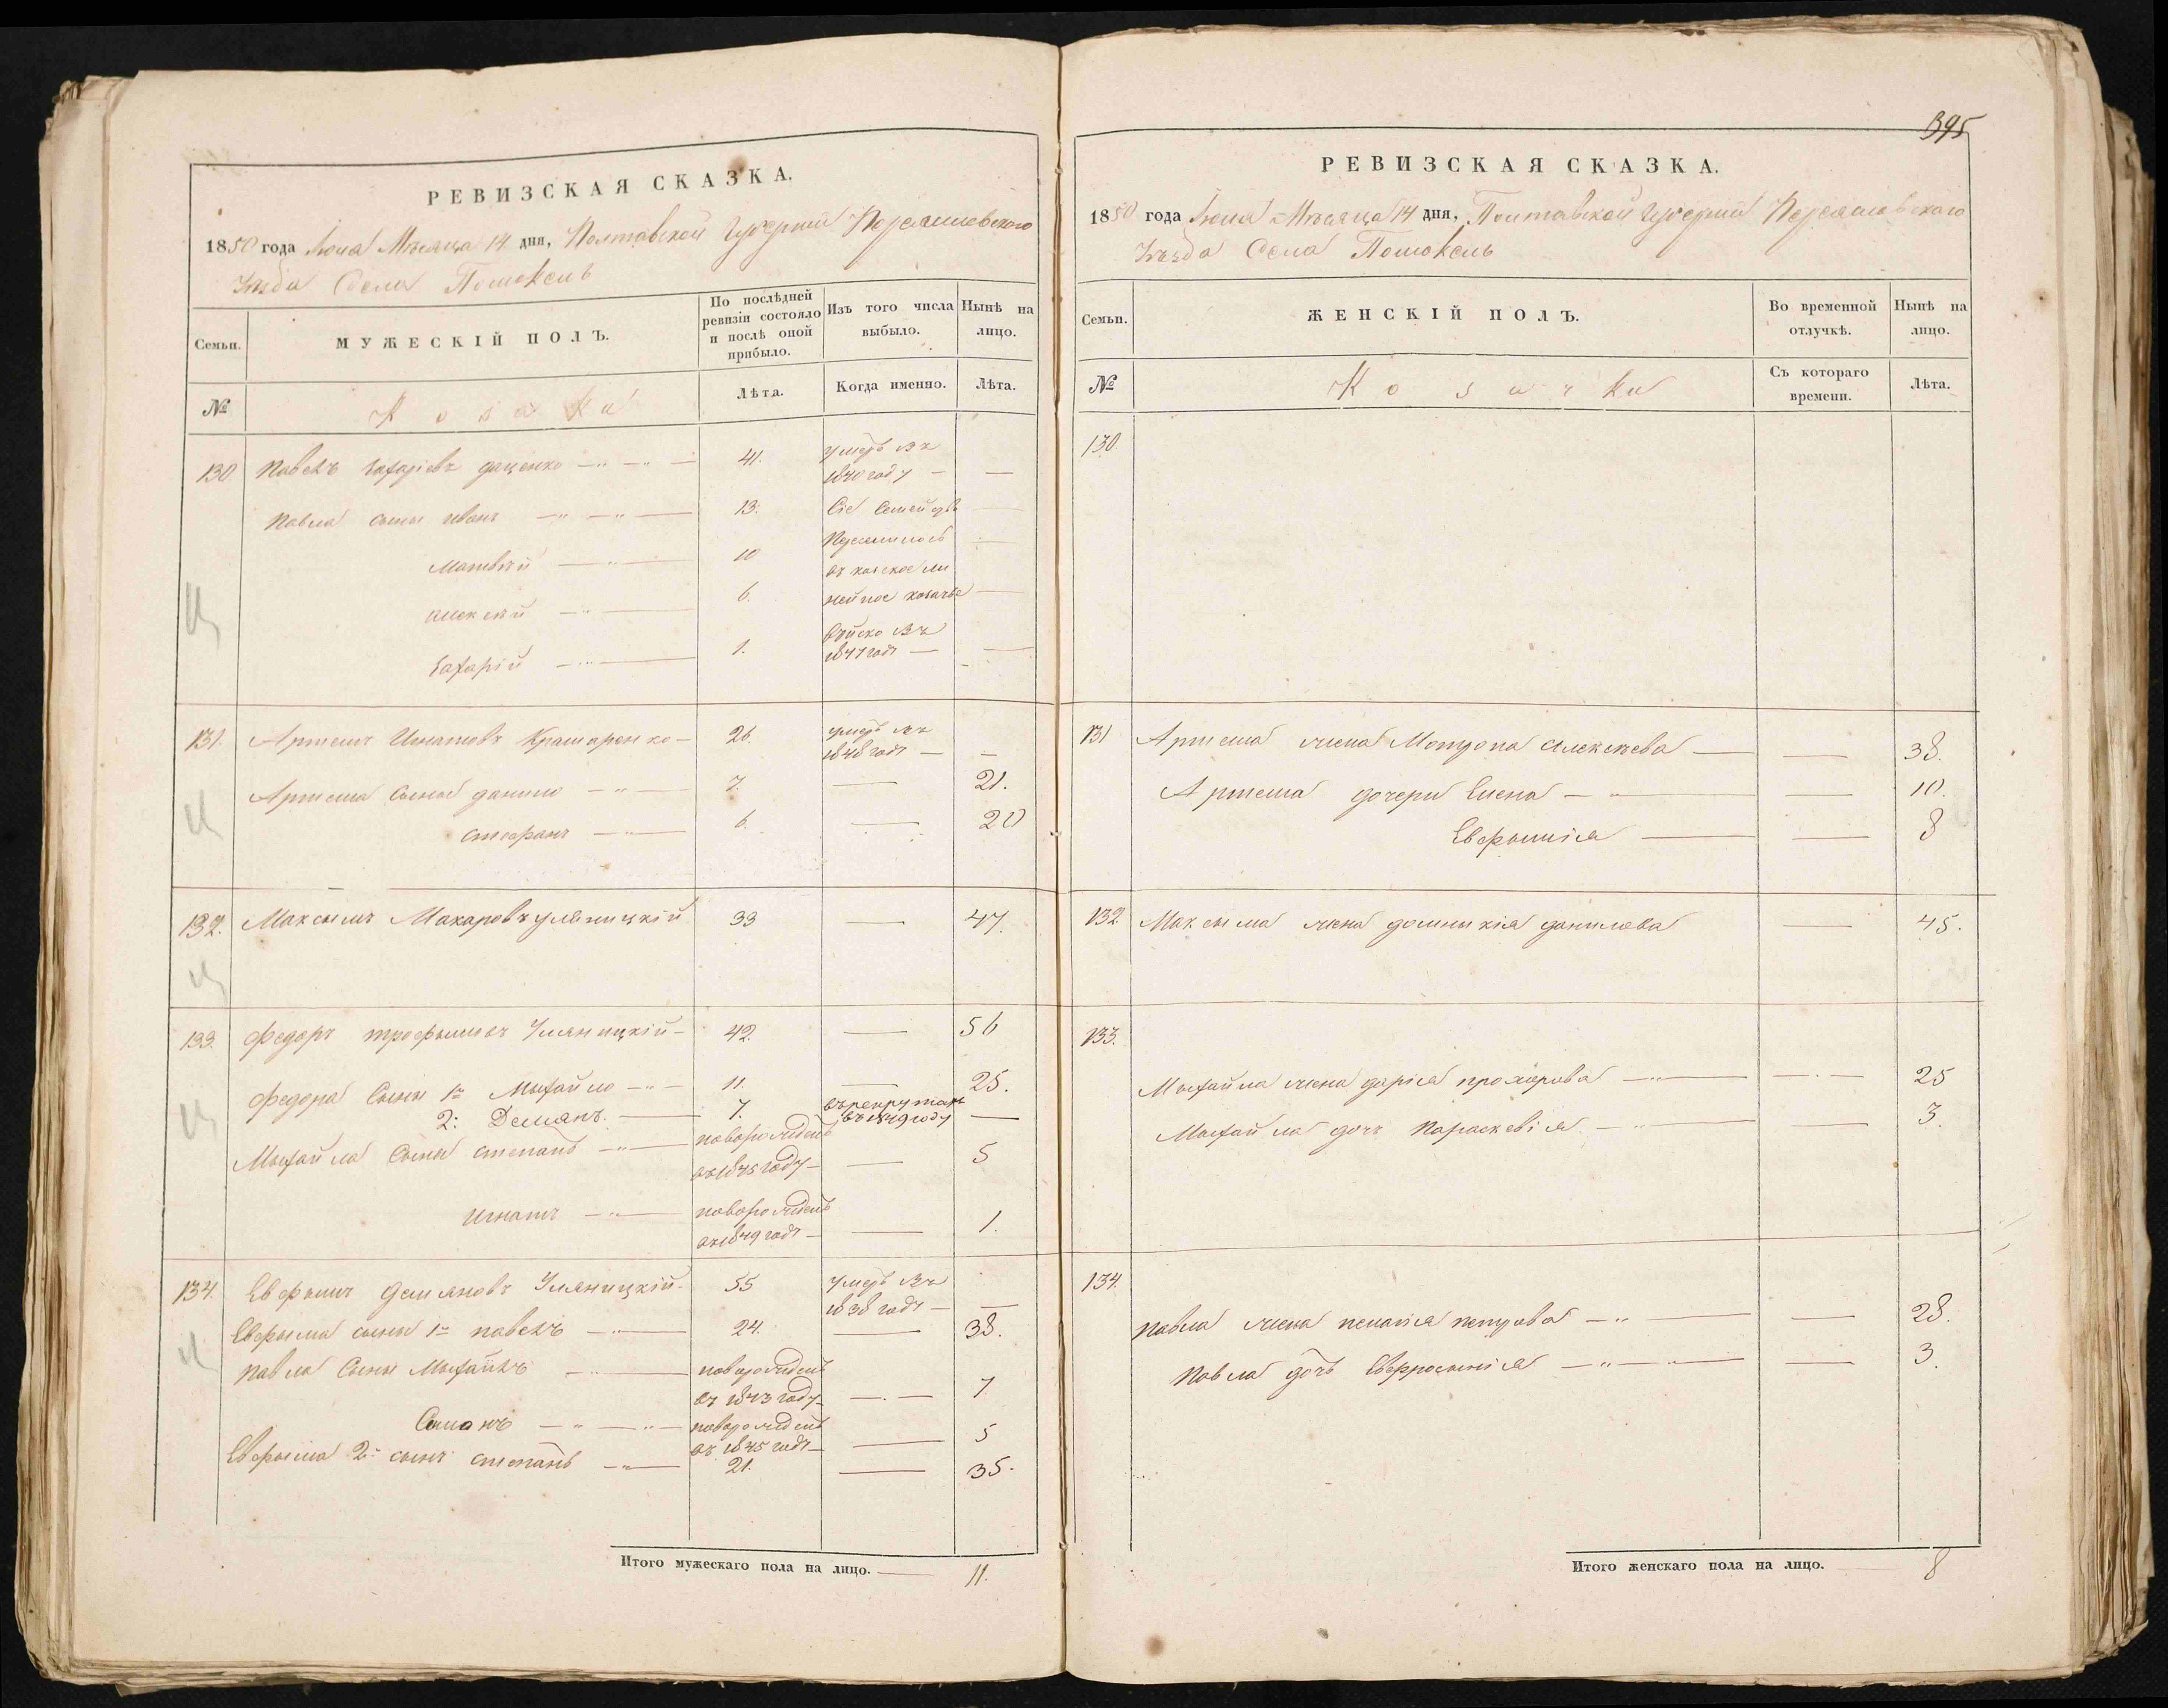 РЕВИЗСКАЯ СКАЗКА.
1850 года Июля Мѣсяца 14 дня, Полтавской Губерніи Переяславского
Уѣзда Села Помоклъ
Семьи.
МУЖЕСКІЙ ПОЛЪ.
По послѣдней ревизіи состояло и послѣ оной прибыло.
Изъ того числа выбыло.
Нынѣ на лицо.
№
Козаки
Лѣта.
Когда именно.
Лѣта.
130 Павелъ Захаріевъ даценко 41. умеръ въ 1840 году —
Павла сыны иванъ 13. Сіе Семейство
Матвѣй 10 Переселилось
Алексѣй 6. въ кавское линейное козачье
Захарій 1. Войско Въ 1847 годѣ —
131. Артемъ Игнатовъ Крамаренко 26. умеръ въ 1848 годѣ —
Артема Сыны данило 7. — 21.
стефанъ 6. — 20
132. Максымъ Макаровъ уляницкій 33 — 47.
133. Федоръ трофымовъ Уляницкій 42. — 56
Федора Сыны 1й Мыхайло 11. — 25.
2: Демянъ. 7. въ рекрутахъ въ 1849 году —
Мыхайла Сыны степанъ новорожденъ въ 1845 году — 5
игнатъ новорожденъ въ 1849 годѣ — 1.
134. Евфымъ демяновъ Уляницкій 55 умеръ Въ 1838 годѣ —
Евфыма сыны 1й павелъ 24. — 38.
павла Сыны Мыхайлъ новорожденъ въ 1843 году — 7
Симонъ новорожденъ въ 1845 годѣ — 5
Евфыма 2й сынъ степанъ 21. — 35.
Итого мужескаго пола на лицо. — 11.
395
РЕВИЗСКАЯ СКАЗКА.
1850 года Июля Мѣсяца 14 дня, Полтавской Губерніи Переяславского
Уѣзда Села Помоклъ
Семьи.
ЖЕНСКІЙ ПОЛЪ.
Во временной отлучкѣ.
Нынѣ на лицо.
№
Козачки
Съ котораго времени.
Лѣта.
130.
131 Артема жена Мотрона алексѣева — 38.
Артема дочери Елена — 10.
Евфымія — 8
132 Максыма жена домныкія данилова — 45.
133.
Мыхайла жена дарія прохорова — 25
Мыхайла дочь параскевія — 3.
134.
павла жена пелагія петрова — 28.
павла дочь Евфросынія — 3.
Итого женскаго пола на лицо. — 8